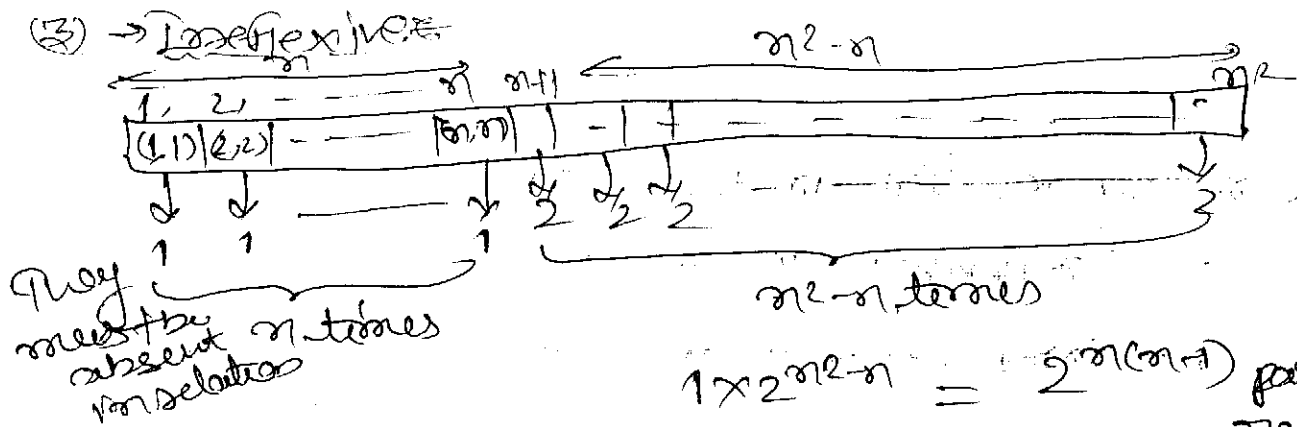 ③ → Irreflexive:
n n²-n
1, 2, - - - - n n+1 n²
(1,1) (2,2) - - - (n,n) - - - - - - - -
1 1 —— 1 2 2 2 - - - - 2
They must be absent in relation
n times n²-n times
1×2^n²-n = 2^n(n-1)